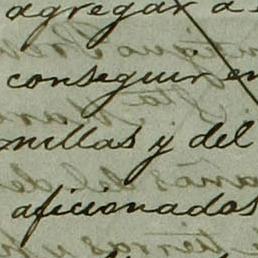 agregar a
conseguir en
nillas y del
aficionados